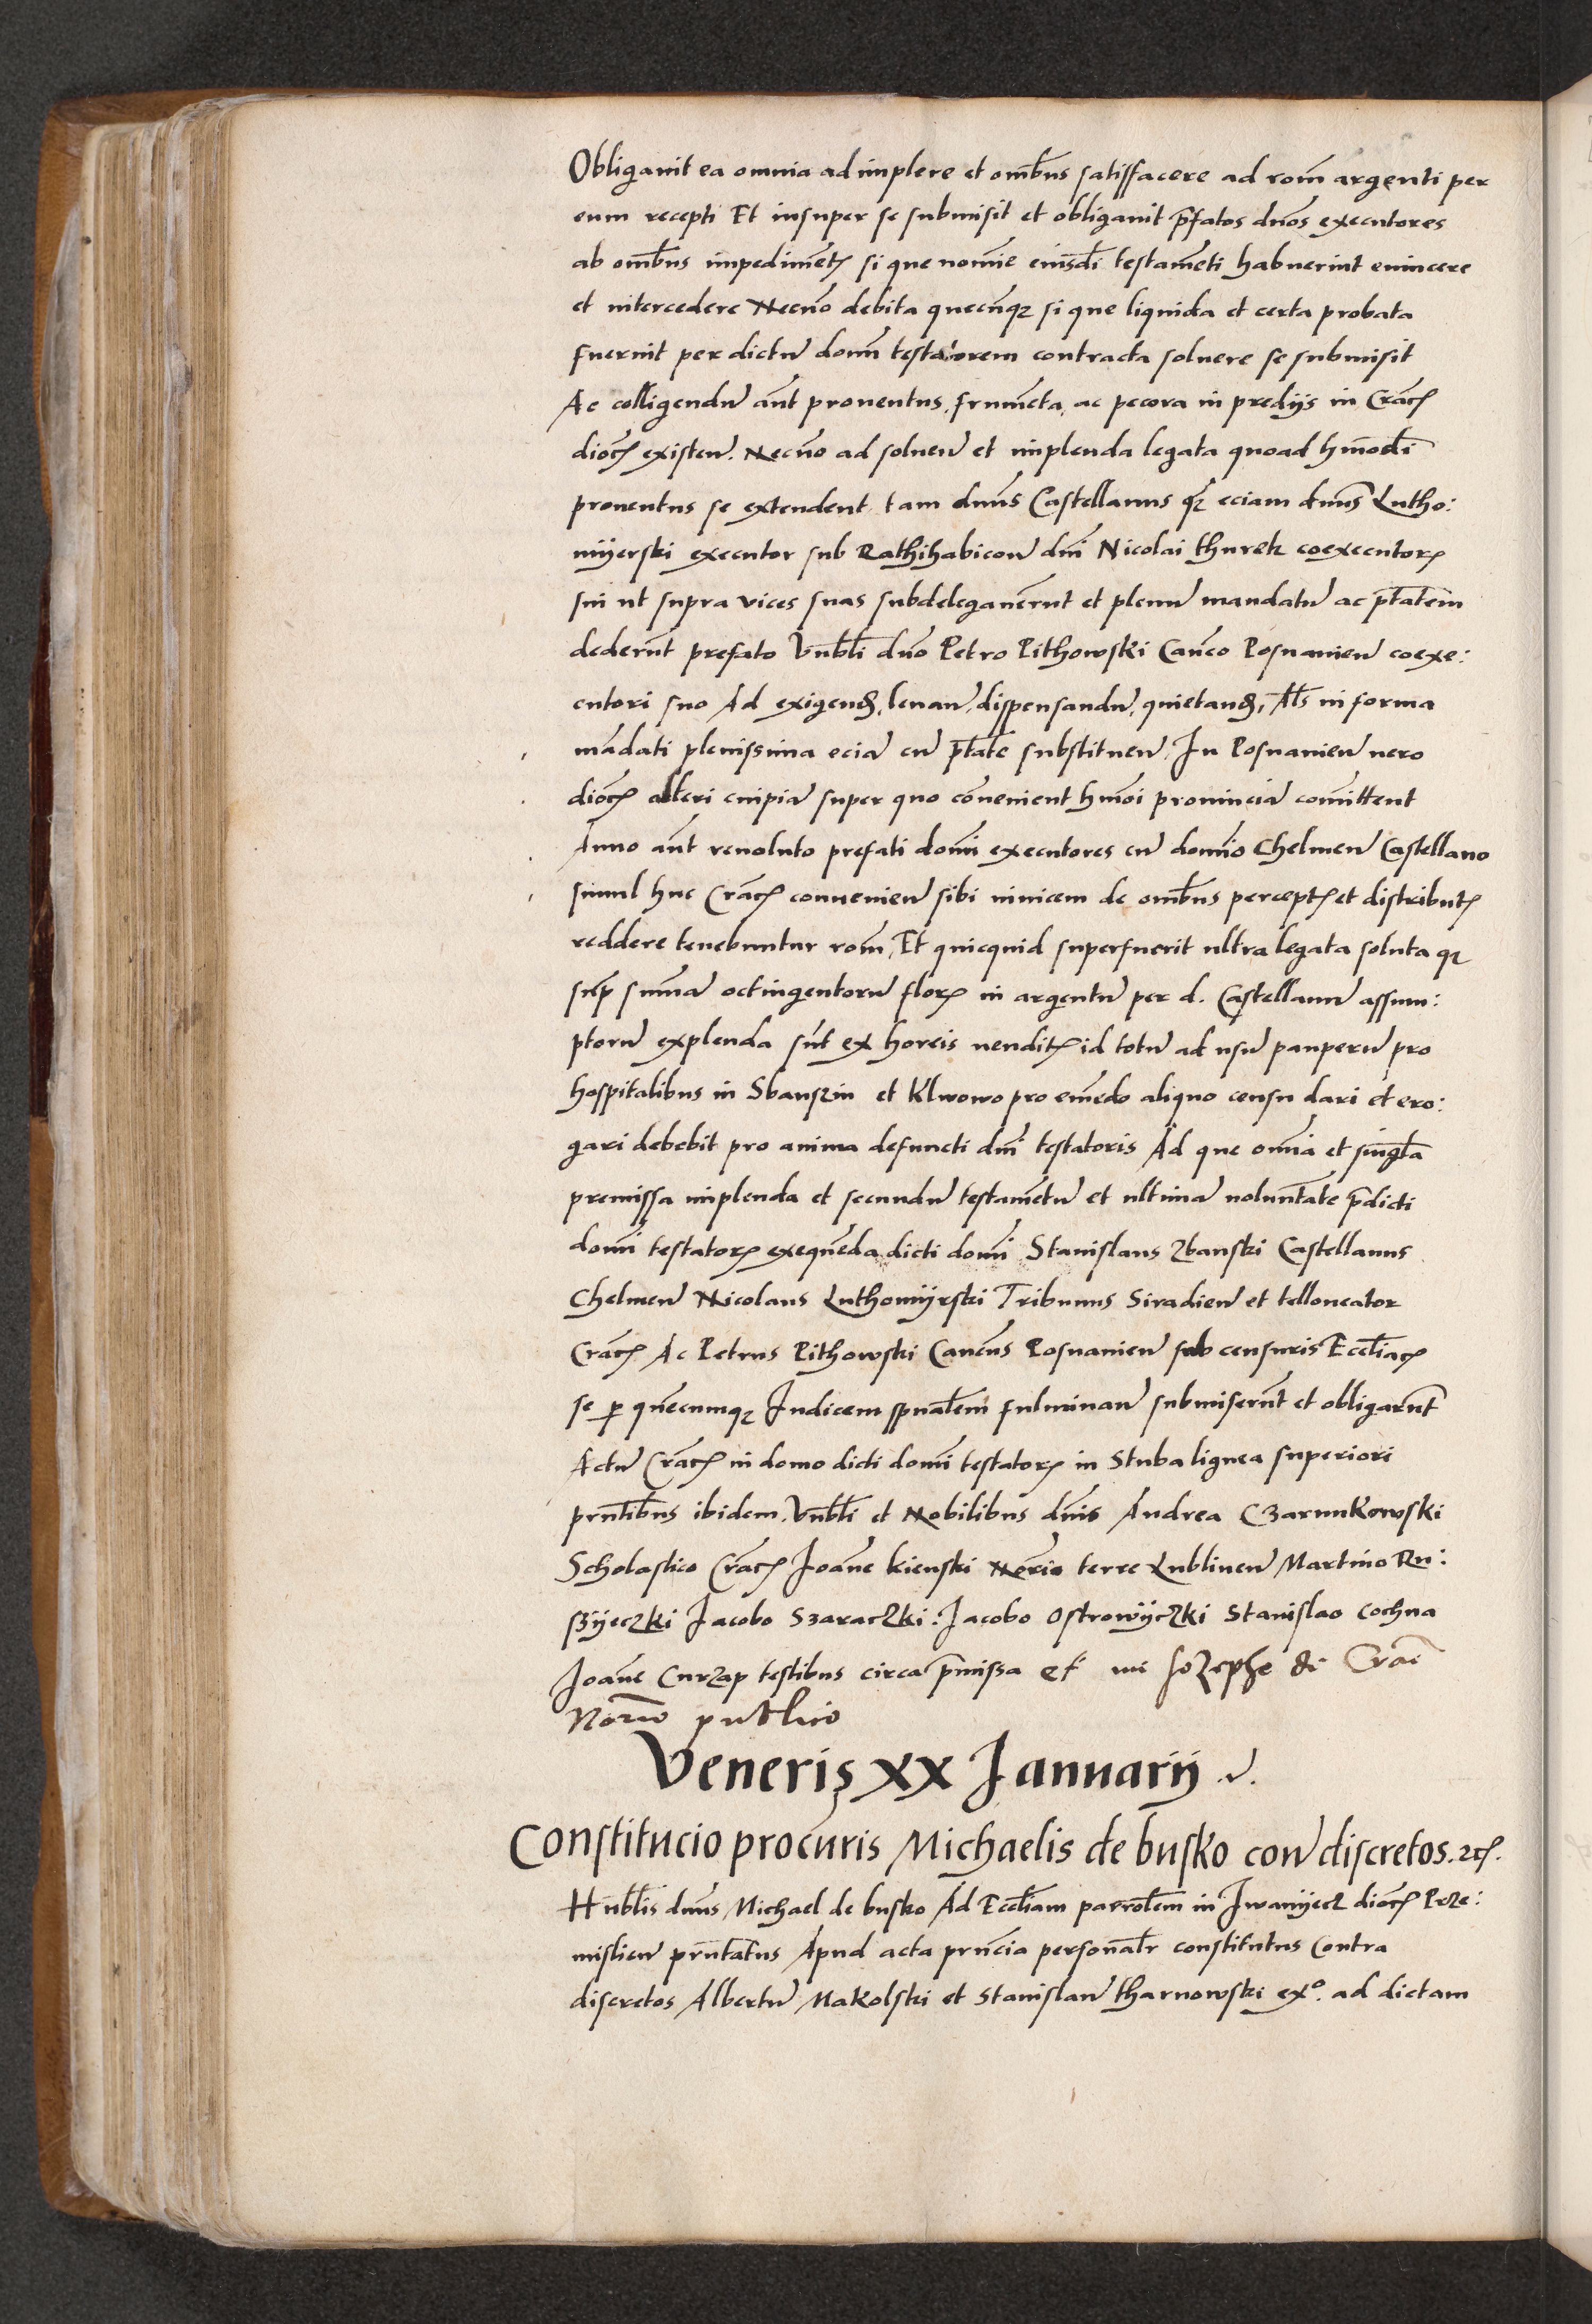 Obligavit ea omnia adimplere et om̄bus satisffacere ad rom̄ argenti per
eum recepti Et insuper se submisit et obligavit p̄fatos dnōs executores
ab om̄bus impedimētꝭ si que nomīe eiusdī testamēti habuerint evincere
et intercedere Necnō debita quecūqꝫ si que liquida et certa probata
fuerint per dictū dom̄ testatorem contracta solvere se submisit
Ac colligendū aūt proventus, frumēta, ac pecora in predijs in Crac̄ꝭ
dioc̄ꝭ existeñ. Necnō ad solveñ et implenda legata quoad hmōdi
proventus se extendent tam dnūs Castellanus qꝫ eciam dnūs Lutho:
mÿerski executor sub Rathihabicoñ dnī Nicolai thurek coexecutorꝭ
sui ut supra vices suas subdelegavērunt et plenū mandatū ac ptātem
dederūnt prefato Vnbli dnō Petro Pithowski Canco Posnanieñ coexe:
cutori suo Ad exigenđ, levañ, dispensandū, quietanđ, Als in forma
mādati plenissima eciā cū ptāte substitueñ, In Posnanieñ vero
dioc̄ꝭ alteri cuipiā super quo cōvenient hmōi provinciā comīttent
Anno aūt revoluto prefati domī executores cū domīo Chelmeñ Castellano
simul huc Crac̄ꝭ convenieñ sibi invicem de om̄bus perceptꝭ et distributꝭ
reddere tenebuntur rom̄, Et quicquid superfuerit ultra legata soluta qꝫ
sup̄ sum̄ā octingentorū florꝭ in argentū per d. Castellanū assum:
ptorū explenda sūnt ex horeis venditꝭ id totū ad usū pauperū pro
hospitalibus in Sbanszin et Klwowo pro emēdo aliquo censu dari et ero:
gari debebit pro anima defuncti dnī testatoris Ad que omīa et singl̄a
premissa implenda et secundū testamētū et ultimā volunt̄ate p̄dicti
domī testatorꝭ exequēda dicti domī Stanislaus Zbanski Castellanus
Chelmeñ Nicolaus Luthomÿrski Tribunus Siradieñ et telloneator
Crac̄ꝭ Ac Petrus Pithowski Cancus Posnanieñ sub censuris Eccl̄iacꝭ
se ꝑ quēcumqꝫ Iudicem spūalem fulminañ submiserūnt et obligarūnt
Actū Crac̄ꝭ in domo dicti domī testatorꝭ in Stuba lignea superiori
prn̄tibus ibidem, Vnbli et Nobilibus dnīs Andrea Czarnnkowski
Scholastico Crac̄ꝭ Joāne kienski Norio terre Lublineñ Martino Ru:
szÿeczki Jacobo Szaraczki: Jacobo Ostrowÿczki Stanislao Cochna
Joāne Curzap testibus circa p̄missa et me Jozephe de Crac̄
Norio publico
Veneris xx Januarij
Constitucio procuris Michaelis de busko coñ discretos. ꝛcꝭ.
Hnblis dnūs Michael de busko Ad Eccl̄iam parrol̄em in Jwanÿecz dioc̄ꝭ Prze:
mislieñ prn̄tatus Apud acta prn̄cia personal̄r constitutus Contra
discretos Albertū Makolski et Stanislaū tharnowski exº. ad dictam